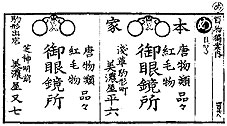 本家
唐物類
紅毛物
品々
御眼鏡所
浅草駒形町
美濃屋平六
唐物類
紅毛物
品々
御眼鏡所
駒形出店
芝神明前
美濃屋又七